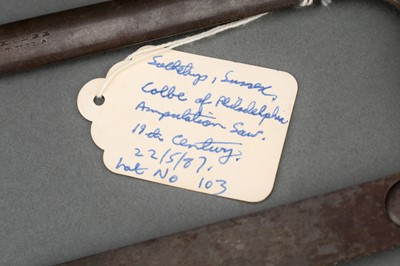 Sothebys, Sussex,
Colbe of Philadelphia
Amputation Saw.
19th Century.
22/5/87.
Lot No 103